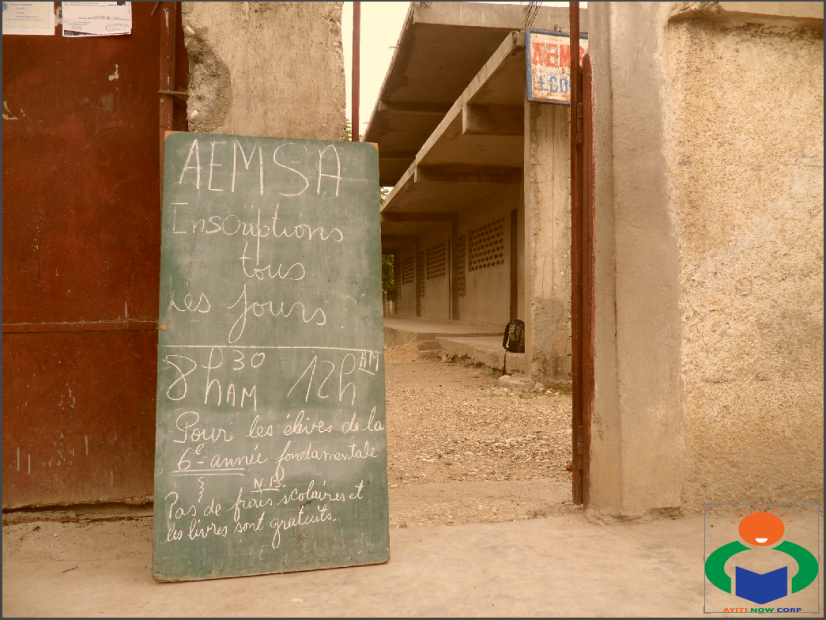 AEM
+ CO
AEMSA
Inscriptions
tous
les jours
8h30 AM 12h AM
Pour les élèves de la
6e année fondamentale
N.B.
Pas de frais scolaires et
les livres sont gratuits.
AYITI NOW CORP